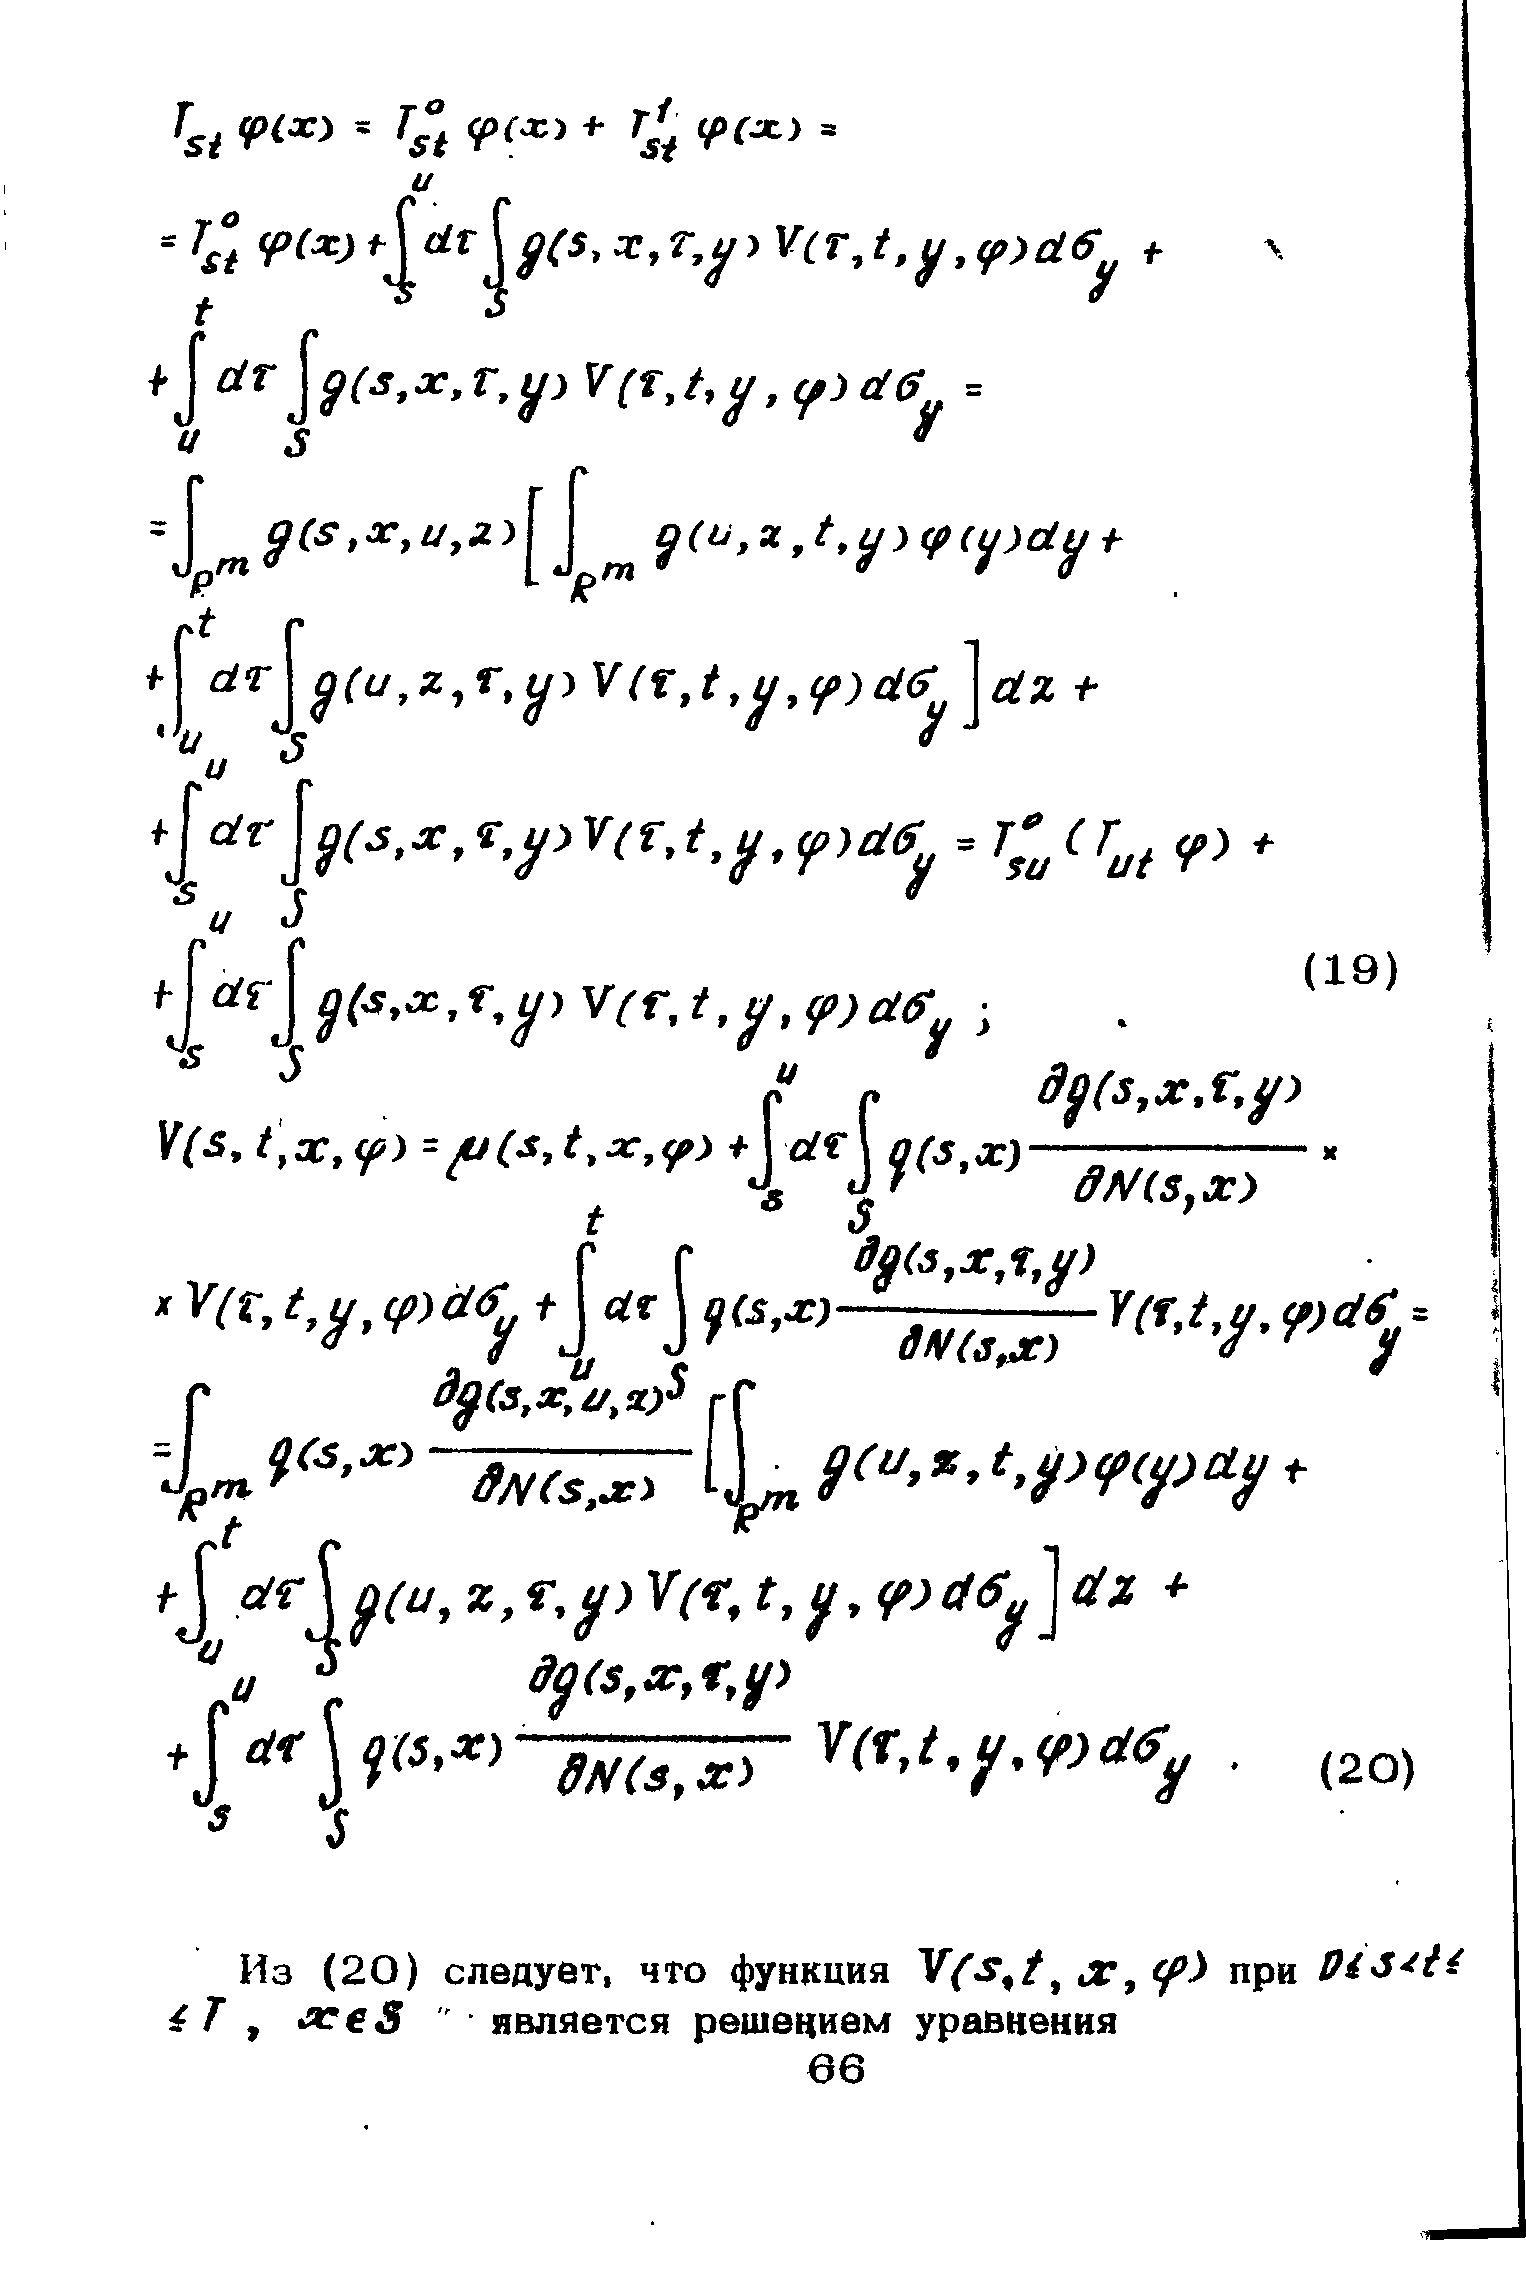 T_{st} φ(x) = T^0_{st} φ(x) + T^1_{st} φ(x) =
= T^0_{st} φ(x) + ∫_s^u dτ ∫_S g(s, x, τ, y) V(τ, t, y, φ) dσ_y +
+ ∫_u^t dτ ∫_S g(s, x, τ, y) V(τ, t, y, φ) dσ_y =
= ∫_{R^m} g(s, x, u, z) [ ∫_{R^m} g(u, z, t, y) φ(y) dy +
+ ∫_u^t dτ ∫_S g(u, z, τ, y) V(τ, t, y, φ) dσ_y ] dz +
+ ∫_s^u dτ ∫_S g(s, x, τ, y) V(τ, t, y, φ) dσ_y = T^0_{su} (T_{ut} φ) +
+ ∫_s^u dτ ∫_S g(s, x, τ, y) V(τ, t, y, φ) dσ_y ; (19)
V(s, t, x, φ) = μ(s, t, x, φ) + ∫_s^u dτ ∫_S q(s, x) ∂g(s, x, τ, y)/∂N(s, x) ×
× V(τ, t, y, φ) dσ_y + ∫_u^t dτ ∫_S q(s, x) ∂g(s, x, τ, y)/∂N(s, x) V(τ, t, y, φ) dσ_y =
= ∫_{R^m} q(s, x) ∂g(s, x, u, z)/∂N(s, x) [ ∫_{R^m} g(u, z, t, y) φ(y) dy +
+ ∫_u^t dτ ∫_S g(u, z, τ, y) V(τ, t, y, φ) dσ_y ] dz +
+ ∫_s^u dτ ∫_S q(s, x) ∂g(s, x, τ, y)/∂N(s, x) V(τ, t, y, φ) dσ_y . (20)
Из (20) следует, что функция V(s, t, x, φ) при 0 ≤ s < t ≤
≤ T , x ∈ S является решением уравнения
66